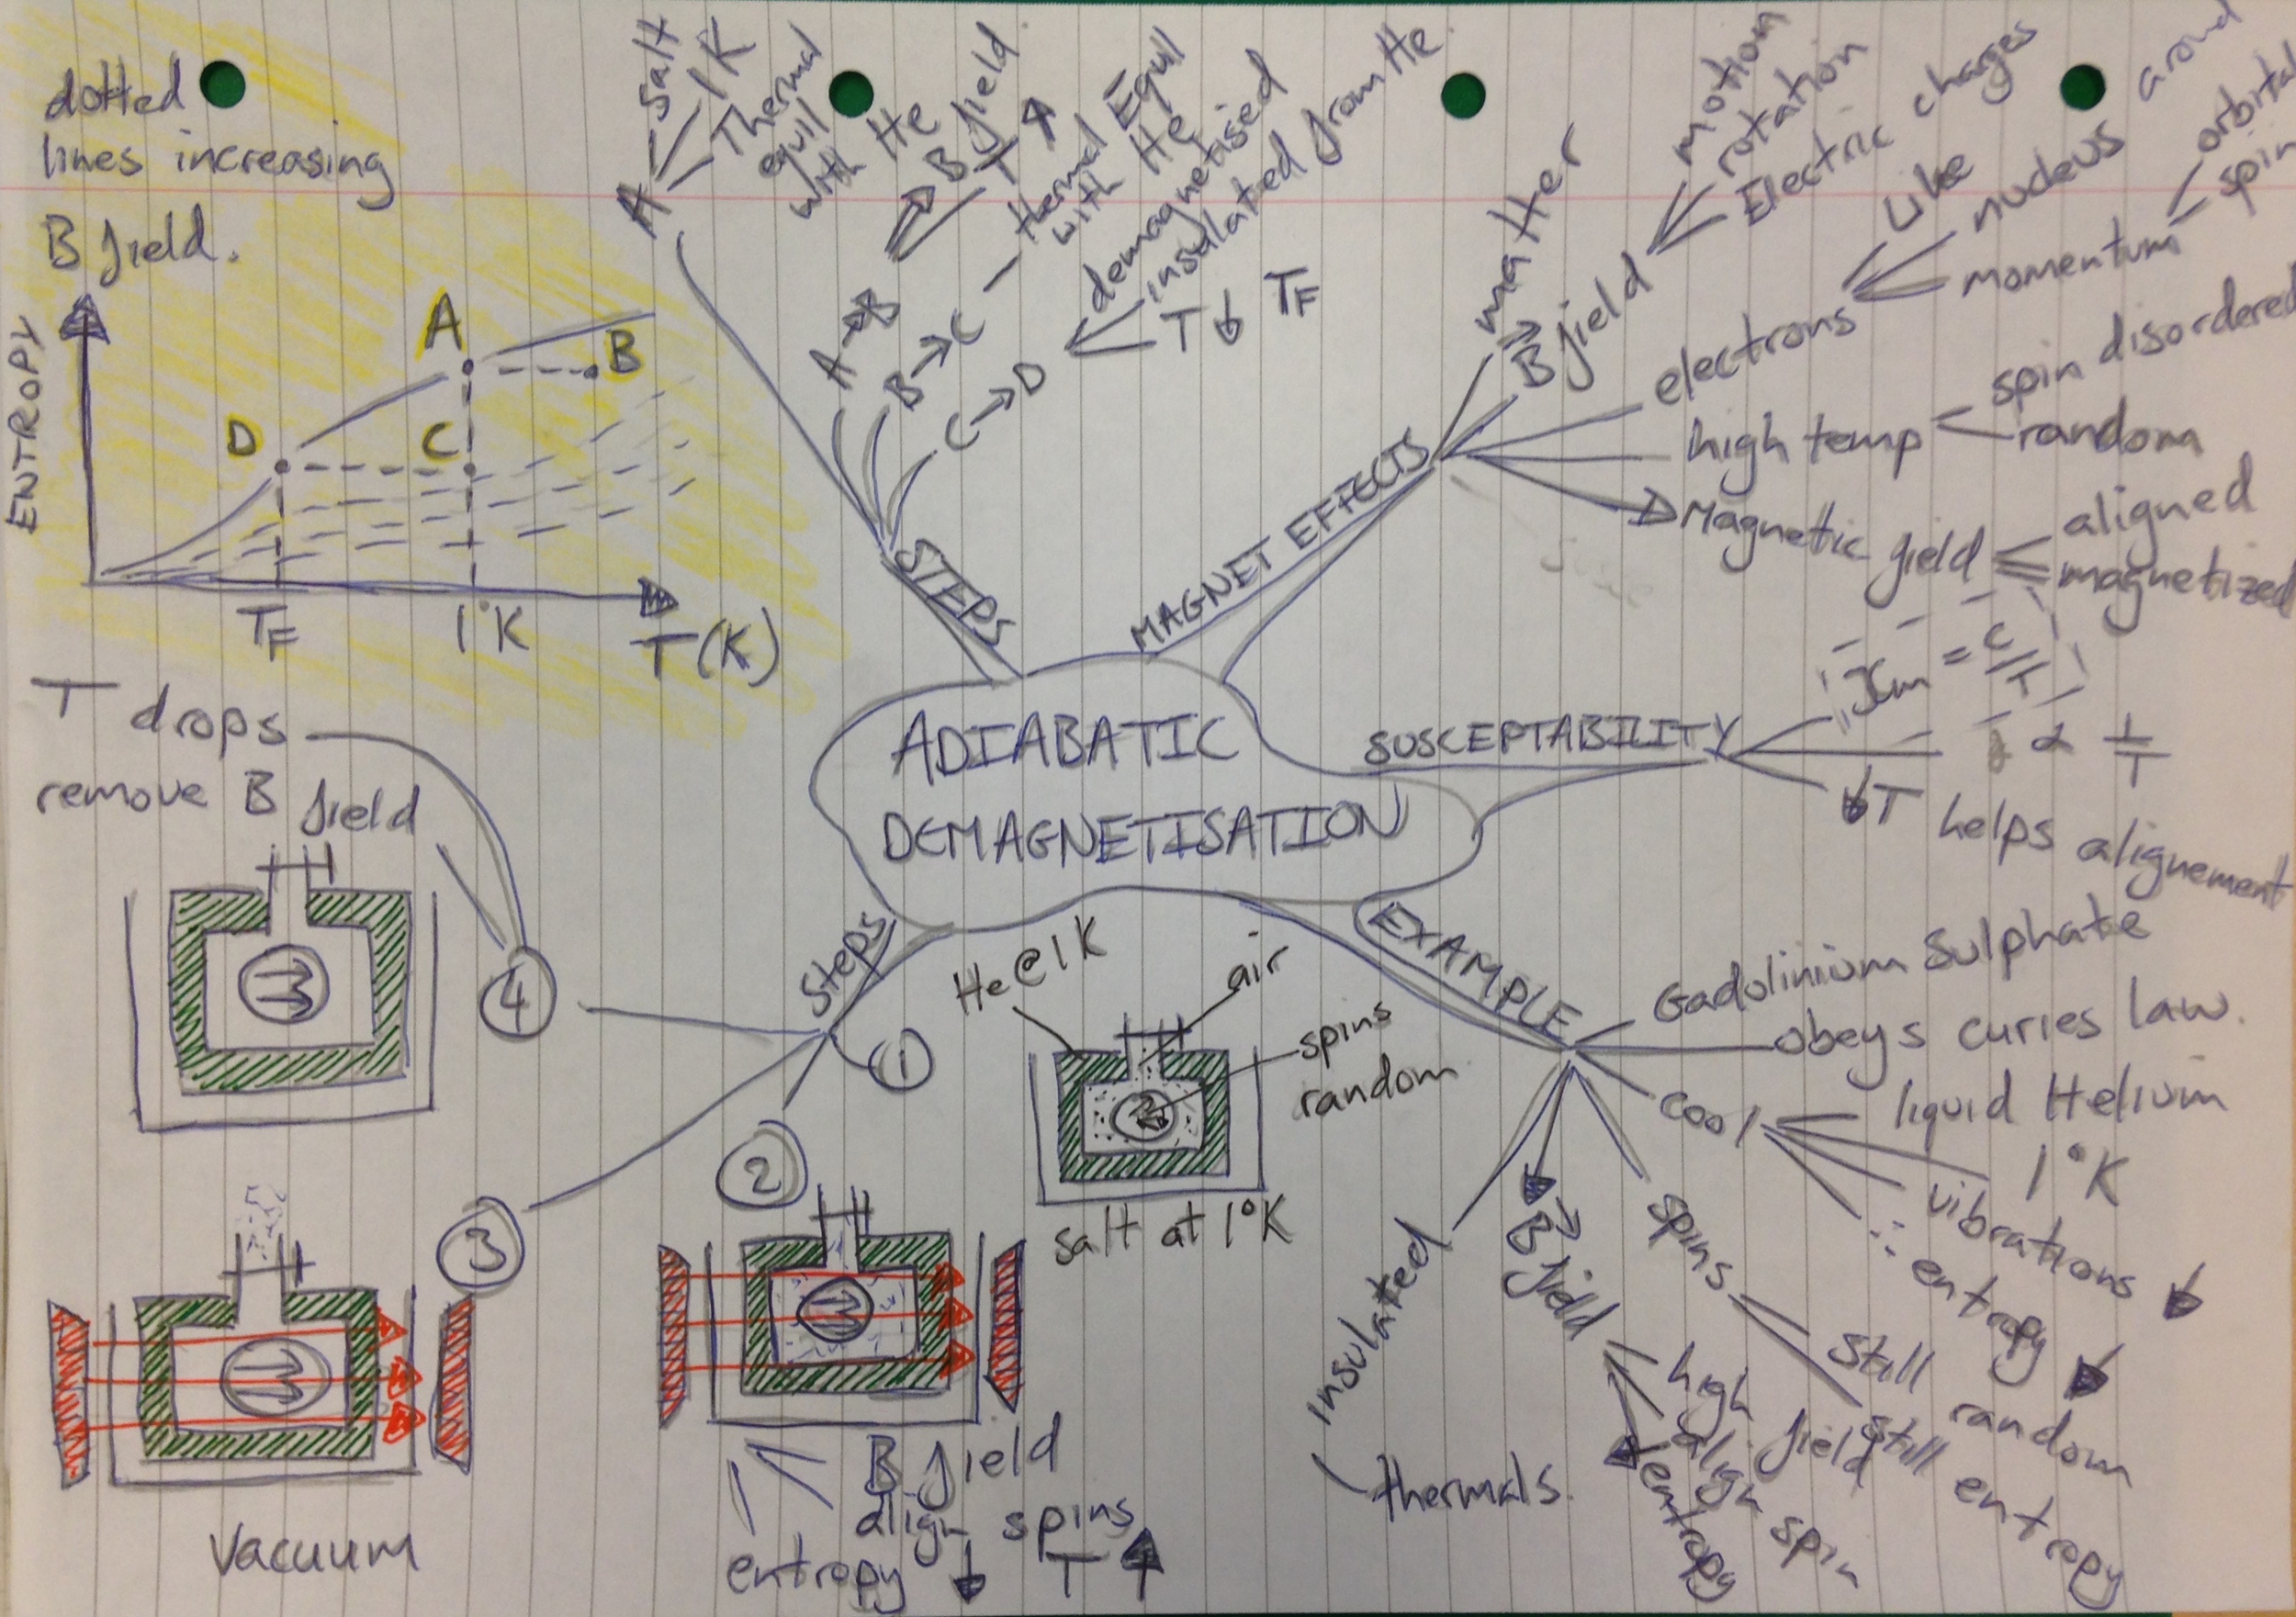 dotted
lines increasing
B field.
ENTROPY
A
B
D
C
T_F
1°K
T(K)
ADIABATIC
DEMAGNETISATION
STEPS
A
Salt
1K
Thermal
equil
with He
A→B
B field
T ↑
B→C
thermal Equil
with He
C→D
demagnetised
insulated from He
T ↓ T_F
MAGNET EFFECTS
matter
B field
motion
rotation
Electric charges
electrons
Like
nucleus around
momentum
orbital
spin
high temp
spin disordered
random
Magnetic field
aligned
magnetized
SUSCEPTABILITY
χm = C/T
α 1/T
↓T helps alignement
EXAMPLE
Gadolinium Sulphate
obeys curies law.
cool
liquid Helium
1°K
vibrations ↓
∴ entropy ↓
spins
Still random
still entropy
B field
high field
align spin
↓ entropy
insulated
thermals.
Steps
1
He@1K
air
spins
random
salt at 1°K
2
B field
align spins
entropy ↓ T ↑
3
Vacuum
4
T drops
remove B field